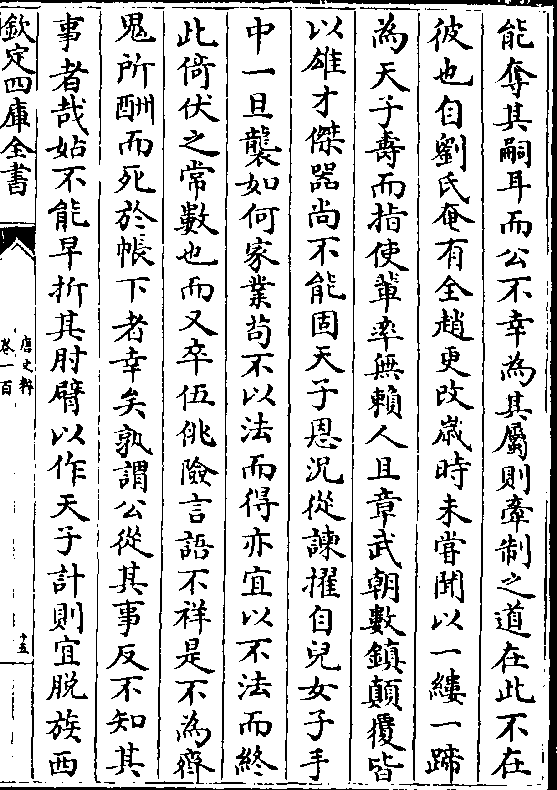 能奪其嗣耳而公不幸為其屬則牽制之道在此不在
彼也自劉氏奄有全趙更改歲時未嘗聞以一縷一蹄
為天子壽而指使輩率無賴人且章武朝數鎮顛覆皆
以雄才傑器尚不能固天子恩況從諫擢自兒女子手
中一旦襲如何家業苟不以法而得亦宜以不法而終
此倚伏之常數也而又卒伍佻險言語不祥是不為齊
鬼所酬而死於帳下者幸矣孰謂公從其事反不知其
事者哉姑不能早折其肘臂以作天子計則宜脱族西
欽定四庫全書
唐文粹
卷一百
十五